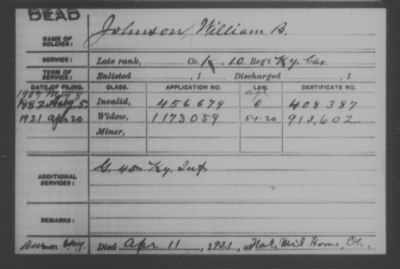 DEAD
NAME OF SOLDIER: Johnson, William B.
SERVICE: Late rank, Co. K, 10 Reg't Ky. Cav.
TERM OF SERVICE: Enlisted , 1 Discharged , 1
DATE OF FILING. CLASS. APPLICATION NO. LAW. CERTIFICATE NO.
1887 Aug 5 Invalid, 456679 408387
1921 Apr 20 Widow, 1173059 5-1-20 913,602
Minor,
ADDITIONAL SERVICES: G. 40 Ky. Inf
REMARKS:
Died Apr 11, 1921, at Nat. Mil Home, O.